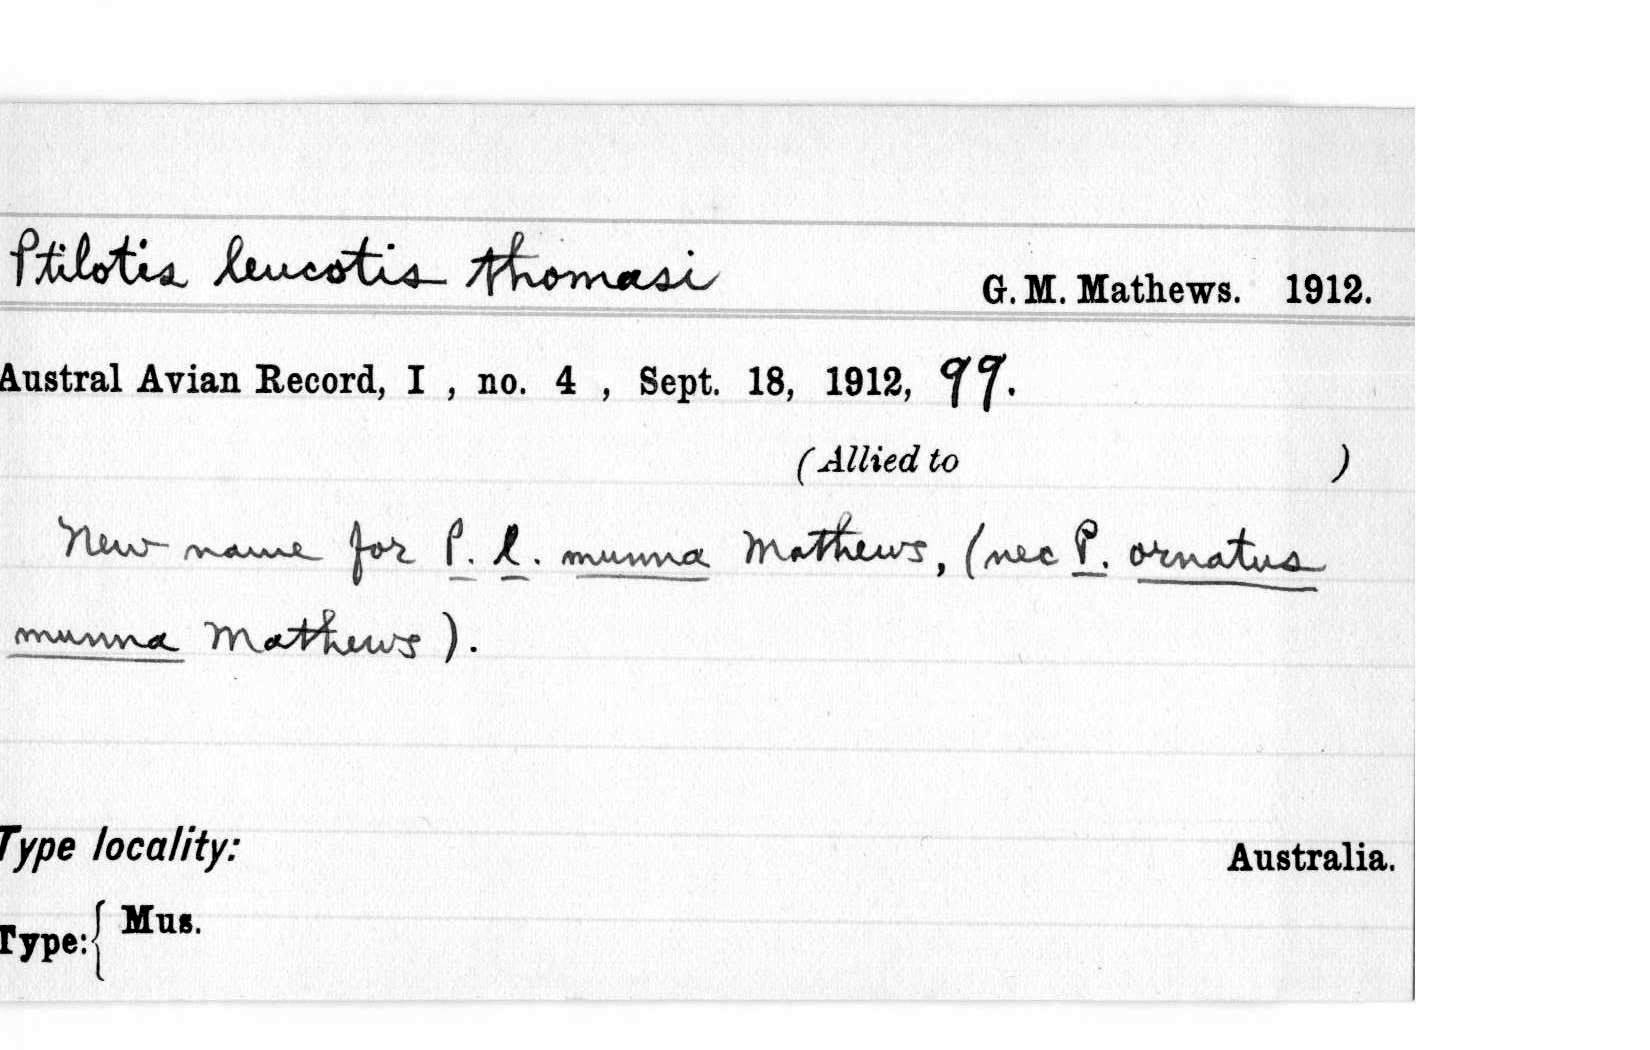 Ptilotis leucotis thomasi G. M. Mathews. 1912.
Austral Avian Record, I , no. 4 , Sept. 18, 1912, 99.
(Allied to )
New name for P. l. munna Mathews, (nec P. ornatus
munna Mathews).
Type locality: Australia.
Type: { Mus.